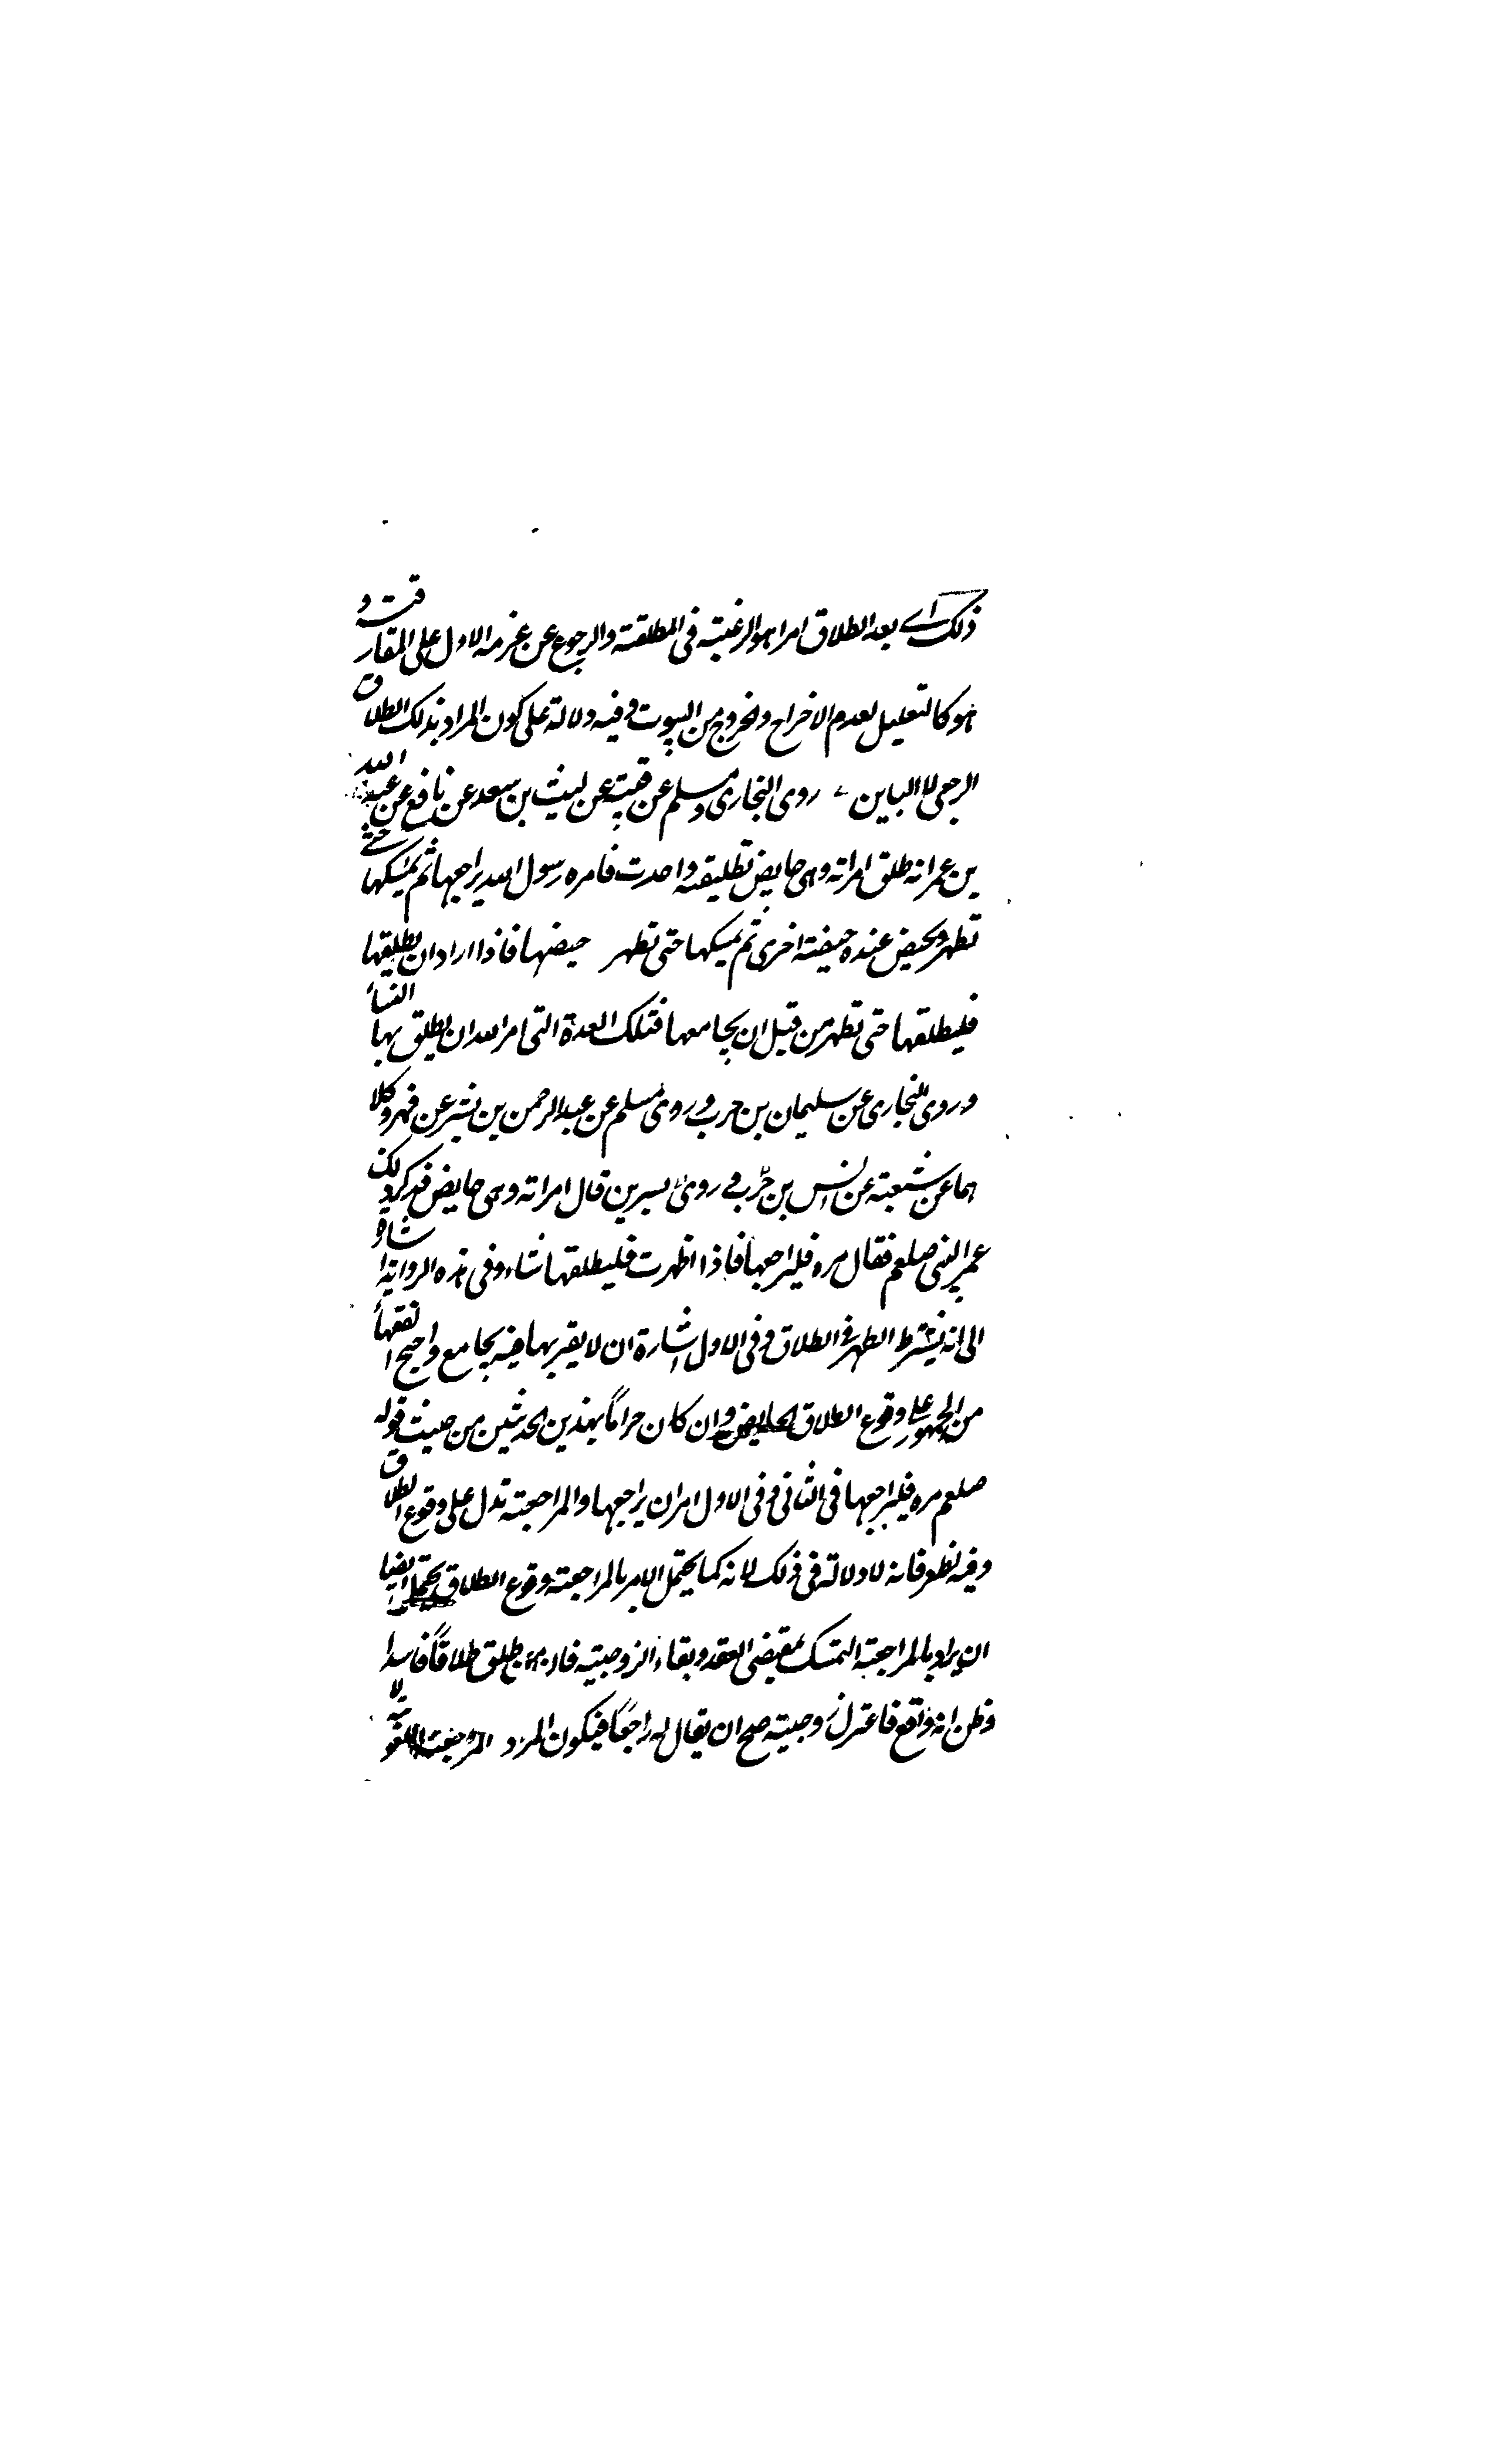 ذلك اے بعد الطلاق امرا هو الرغبته فى المطلقته والرجوع عن عزمه الاول على المقارقت و
هو كالتعليل لعدم الاخراج والخروج من البيوت وفيه دلالة على كون المراد بذلك الطلاق
الرجعى لا الباين روى البخارى ومسلم عن قتيبه عن ليث بن سعد عن نافع عن عبد الله
بن عمر انه طلق امراته وهى حايض تطليقته واحدت فامره رسول الله يراجعها ثم يمسكها حتى
تطهر وتحيض عنده حيضته اخرى ثم يمسكها حتى تطهر حيضها فاذا اراد ان يطليقها
فليطلقها حتى تطهر من قبل ان يجامعها فتلك العدة التى امر الله ان يطلق بها النساء
وروى البخارى عن سليمان بن حرب وروى مسلم عن عبد الرحمن بن بشر عن فهر وكلا
هما عن شعبته عن انس بن سيرين قال امراته وهى حايض فذكر ذلك
عمر النبى صلعم فقال مره فليراجعها فاذا اظهرت فليطلقها شاء وفى هذه الرواية اشارة
الى انه يشترط الطهر فى الطلاق وفى الاول اشارة ان لا يقربها فيه بجامع واحتج الفقهاء
من الجمهور على وقوع الطلاق الحايض وان كان حراما بهذين الحديثين من حيث قوله
صلعم مره فليراجعها فى الثانى وفى الاول امر ان يراجعها والمراجعته تدل على وقوع الطلاق
وفيه نظر فانه لا دلالته فى ذلك لانه كما يحتمل الامر بالمراجعته وقوع الطلاق يحتمل ايضا
ان يراد بالمراجعته التمسك بمقتضى العقد وبقاء الزوجيته فان طلق طلاقا فاسدا
وظن انه واقع فاعتزل زوجيته صح ان يقال له راجعا فيكون المراد المراجعته اللغوية لا